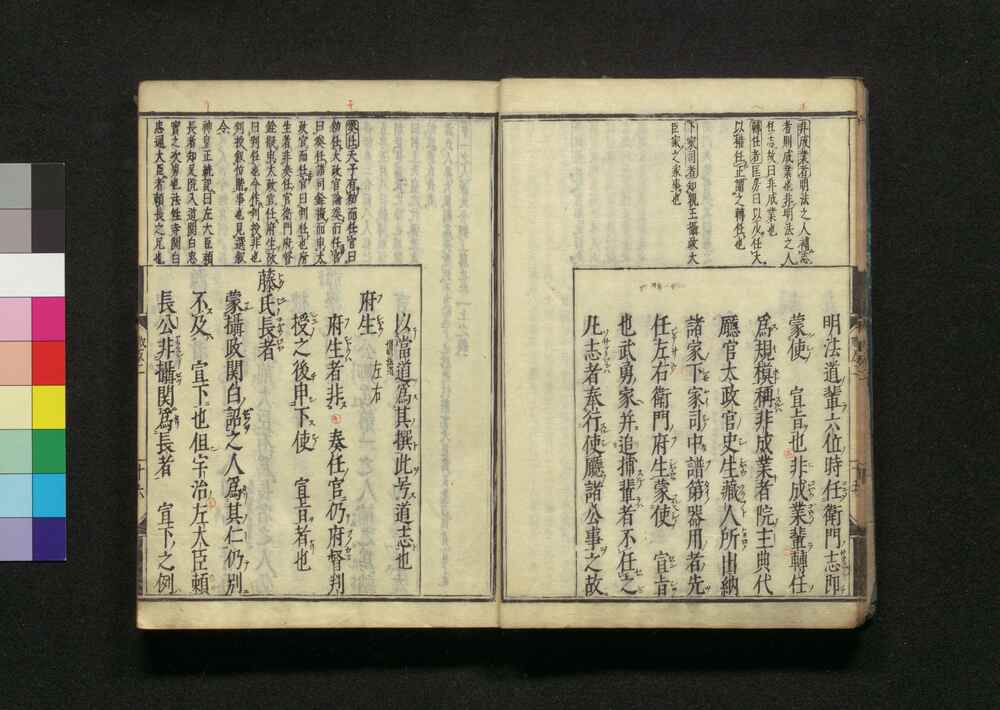 非成業者明法之人補志
者則成業也非明法之人
任志故曰非成業也
轉任者
下家司者如親王攝政大
臣家之家來也
明法道輩六位時任衛門志即
蒙使　宣旨也非成業輩轉任
為規模稱非成業者院主典代
廳官太政官史生藏人所出納
諸家下家司中譜第器用者先
任左右衛門府生蒙使　宣旨
也武勇家并追捕輩者不任之
凡志者奉行使廳諸公事之故
奏任天子有勅而任官曰
勅任太政官論奏而任官
政官而任官曰判任也府
生者非奏任官衛門府督
銓擬申太政官任府生故
曰判任也今作判授非也
令
神皇正統記曰左大臣頼
長者知足院入道関白忠
實之次男也法性寺関白
忠通大臣者頼長之兄也
以當道為其撰此号道志也
府生　左右
府生者非　奏任官仍府督判
授之後申下使　宣旨者也
藤氏長者
蒙攝政関白詔之人為其仁仍別
不及　宣下也但宇治左大臣頼
長公非攝関為長者　宣下之例